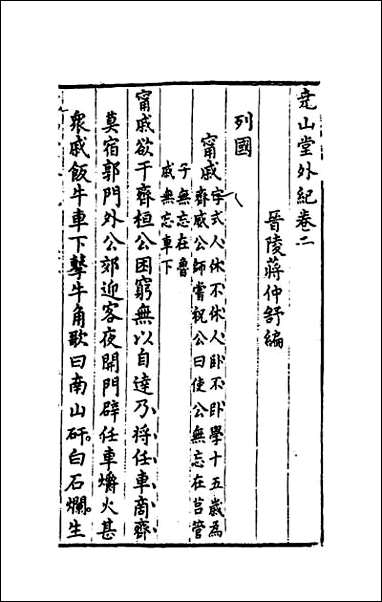 堯山堂外紀卷二
晉陵蔣仲舒編
列國
甯戚
字式人休不休人卧不卧學十五歲為
齊威公師嘗祝公曰使公無忘在莒管
子無忘在魯
戚無忘車下
甯戚欲干齊桓公困窮無以自達乃將任車商齊
莫宿郭門外公郊迎客夜開門辟任車爝火甚
衆戚飯牛車下擊牛角歌曰南山矸。白石爛。生